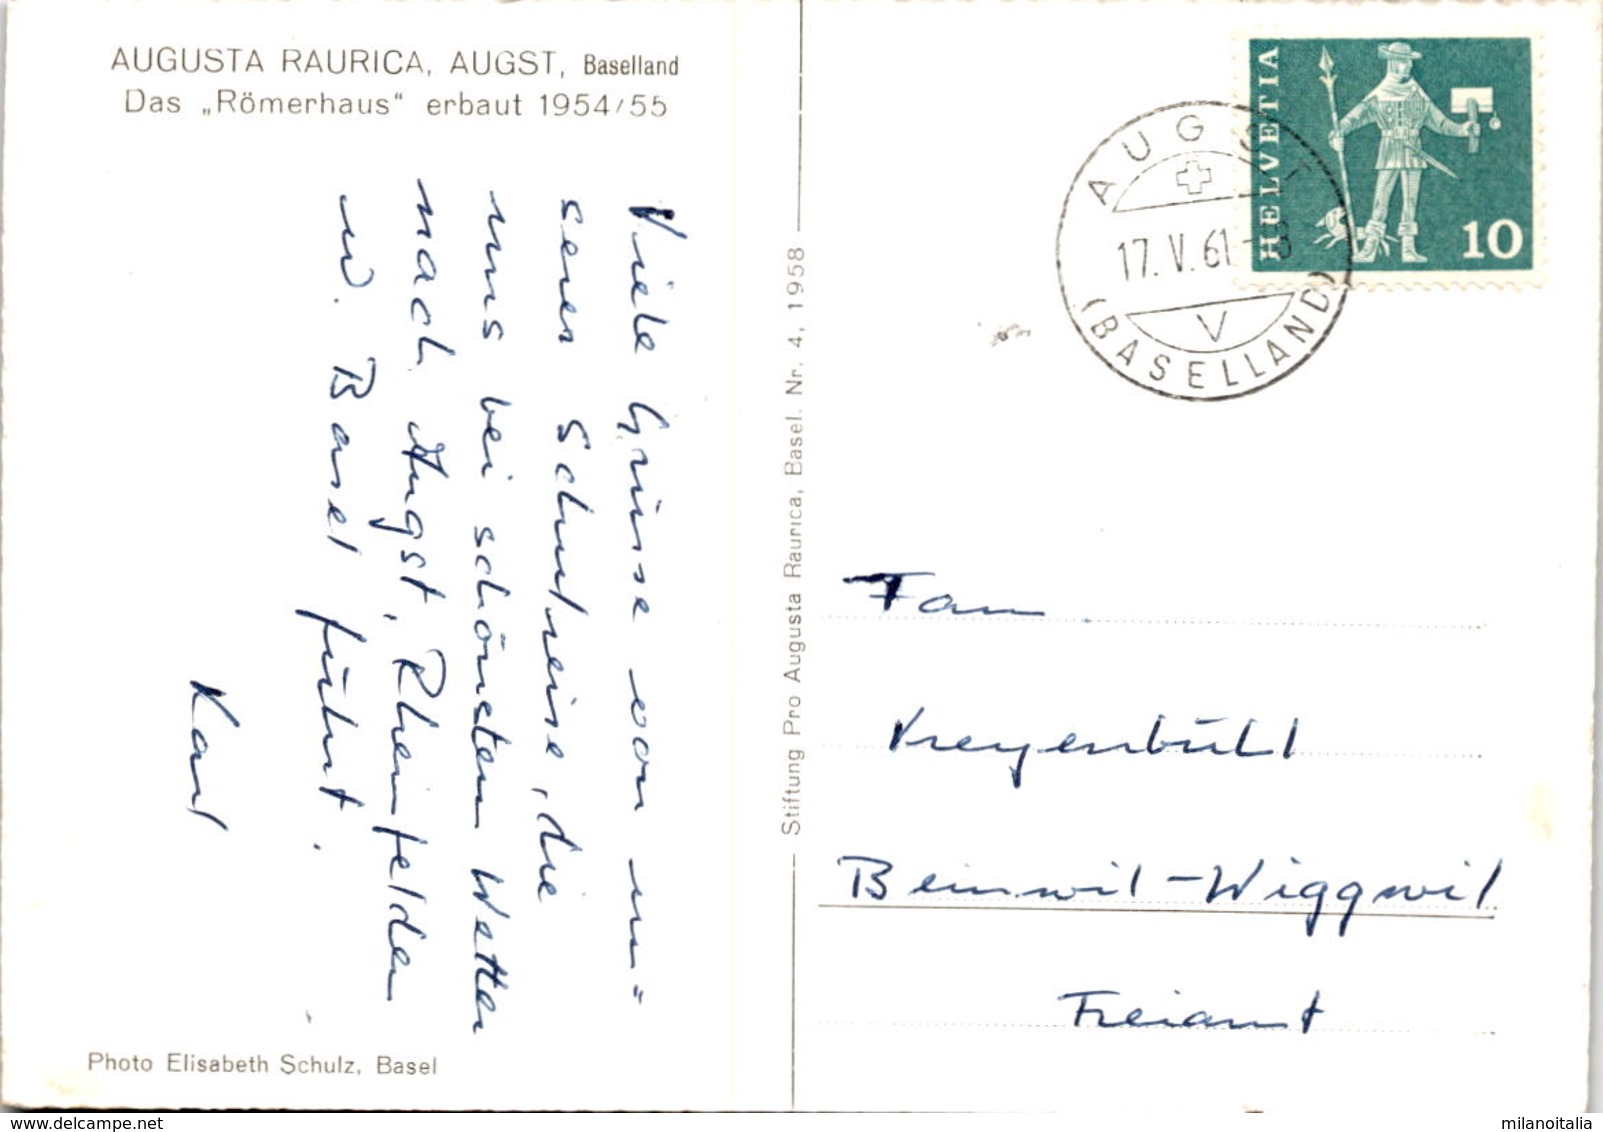 AUGUSTA RAURICA, AUGST, Baselland
Das „Römerhaus" erbaut 1954/55
Viele Grüsse von un=
serer Schulreise, die
uns bei schönstem Wetter
nach Augst, Rheinfelden
u. Basel führt.
Karl
Photo Elisabeth Schulz, Basel
Stiftung Pro Augusta Raurica, Basel. Nr. 4, 1958
HELVETIA
10
AUGST
17. V. 61 - 8
V
(BASELLAND)
Fam
Kreyenbühl
Beinwil - Wiggwil
Freiamt
delcampe.net
milanoitalia